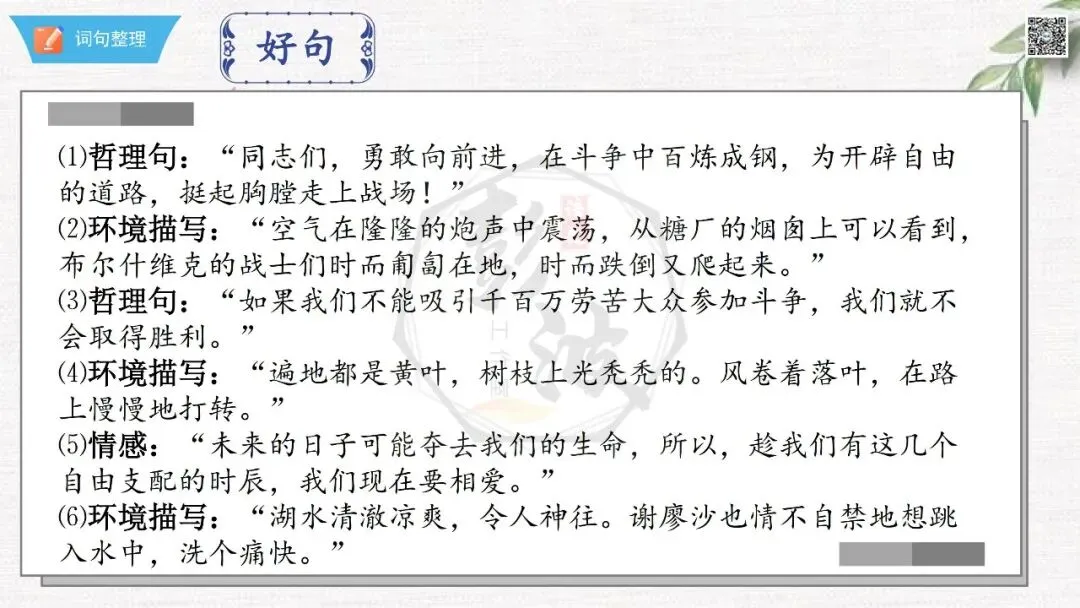 词句整理
好句
⑴哲理句：“同志们，勇敢向前进，在斗争中百炼成钢，为开辟自由
的道路，挺起胸膛走上战场！”
⑵环境描写：“空气在隆隆的炮声中震荡，从糖厂的烟囱上可以看到，
布尔什维克的战士们时而匍匐在地，时而跌倒又爬起来。”
⑶哲理句：“如果我们不能吸引千百万劳苦大众参加斗争，我们就不
会取得胜利。”
⑷环境描写：“遍地都是黄叶，树枝上光秃秃的。风卷着落叶，在路
上慢慢地打转。”
⑸情感：“未来的日子可能夺去我们的生命，所以，趁我们有这几个
自由支配的时辰，我们现在要相爱。”
⑹环境描写：“湖水清澈凉爽，令人神往。谢廖沙也情不自禁地想跳
入水中，洗个痛快。”